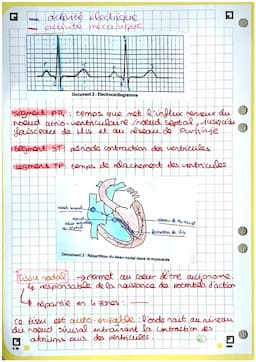 activité électrique
activité mécanique
Document 2 : Electrocardiogramme
segment PR : temps que met l'influx nerveux du
noeud atrio-ventriculaire / noeud septal, jusqu'au
faisceau de His et au réseau de Purkinje
segment ST : période contraction des ventricules
segment TP : temps de relâchement des ventricules
Document 3 : Répartition du tissu nodal dans le myocarde
tissu nodal → permet au coeur d'être autonome
↳ responsable de la naissance des potentiels d'action
↳ répartie en 4 zones :
ce tissu est auto-excitable : l'onde naît au niveau
du noeud sinusal entraînant la contraction des
atriums puis des ventricules